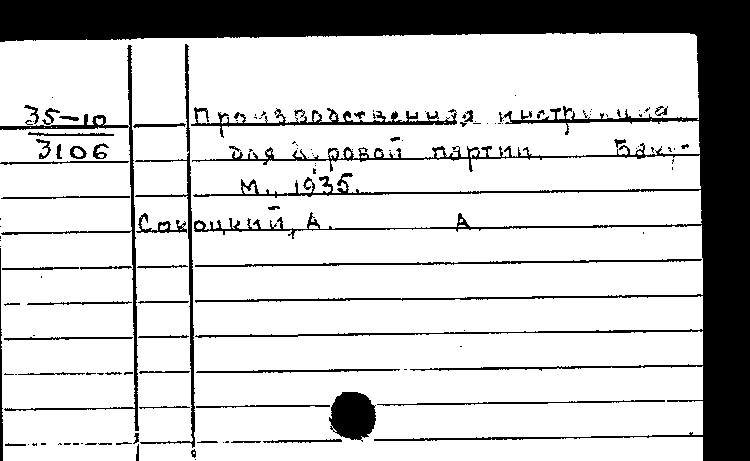 35-10
3106
Производственная инструкция
для буровой партии. Баку-
М., 1935.
Сокоцкий, А. А.